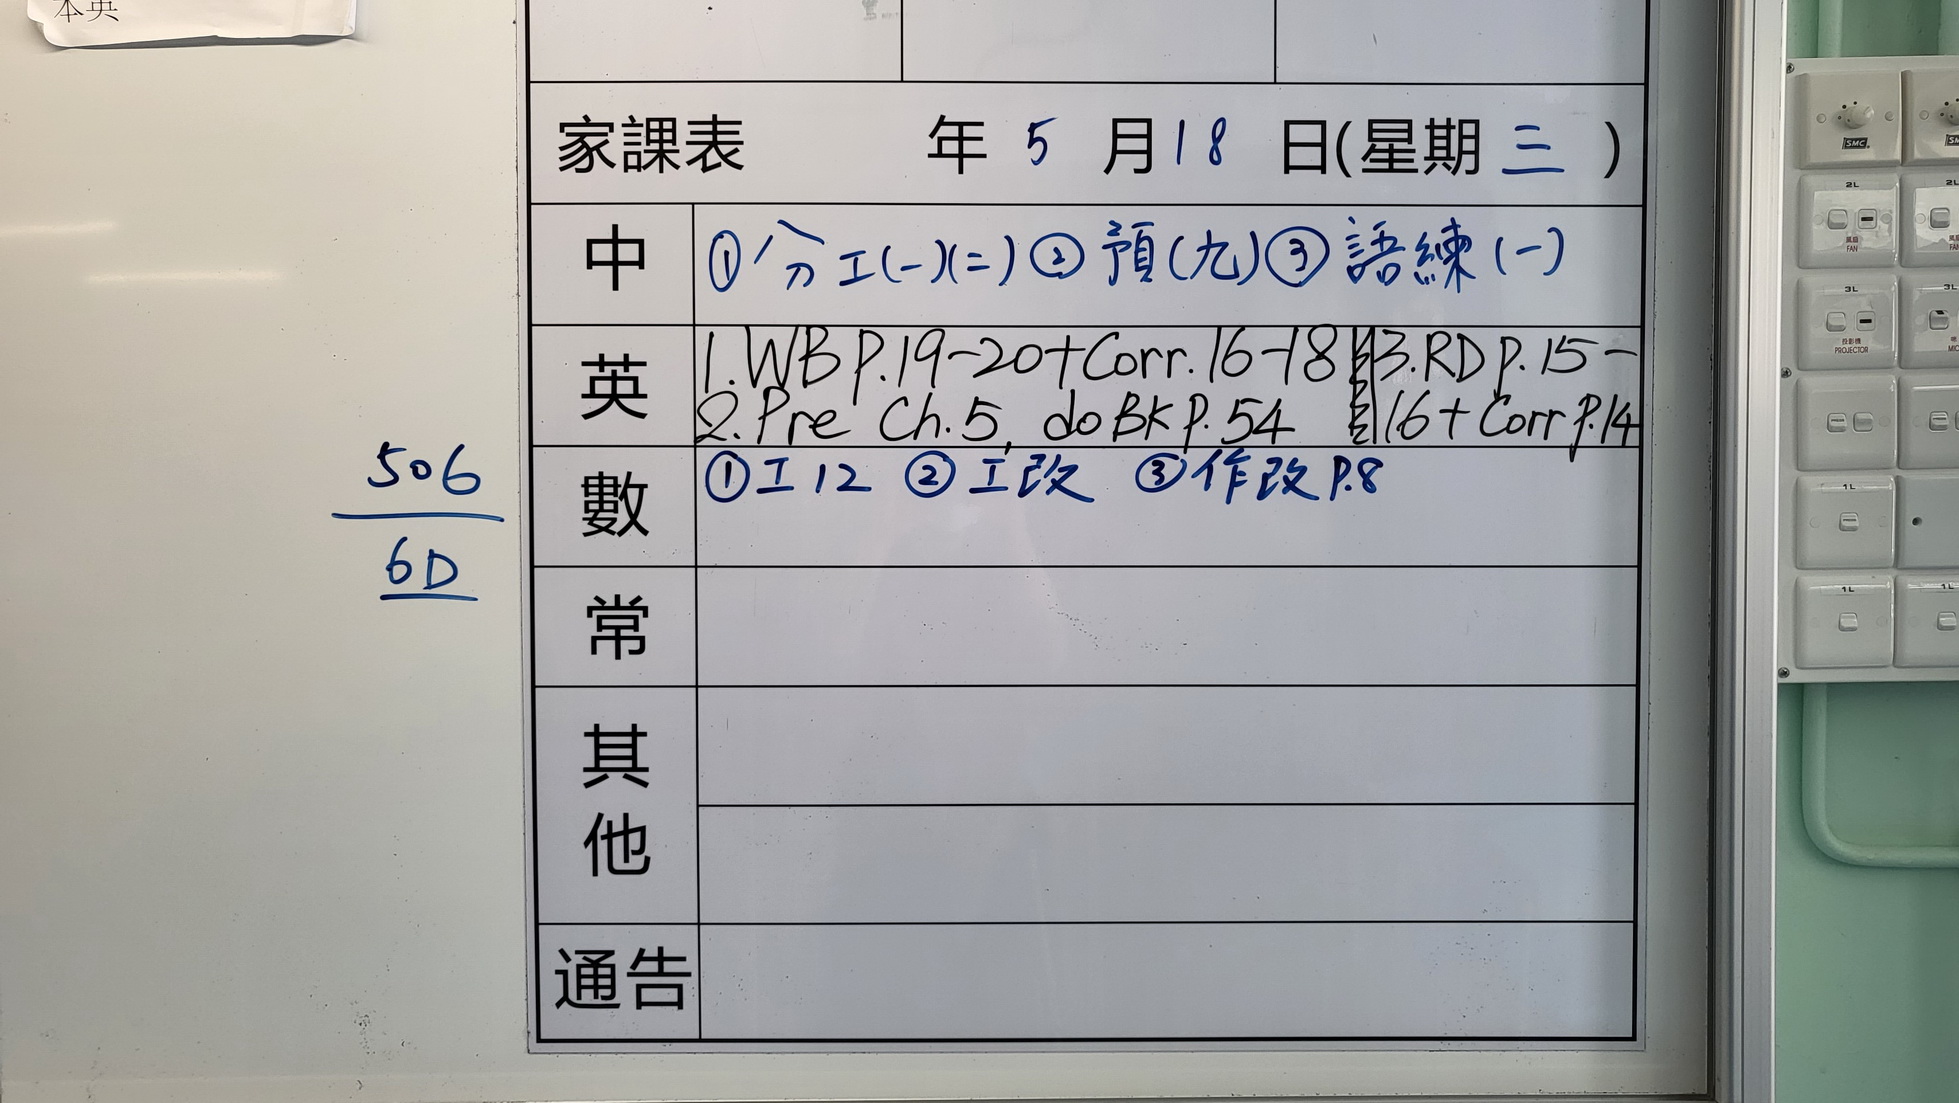 本英
家課表 年 5 月 18 日(星期 三 )
中 ①分工(一)(二) ② 預(九) ③ 語練(一)
英 1. WB P.19-20+Corr.16-18 3.RD p.15-
2. Pre Ch.5, do BK P.54 16+ Corr P.14
數 ①工12 ②工改 ③作改 P.8
506
6D
常
其他
通告
SMC
2L
FAN
3L
投影機
PROJECTOR
1L
1L